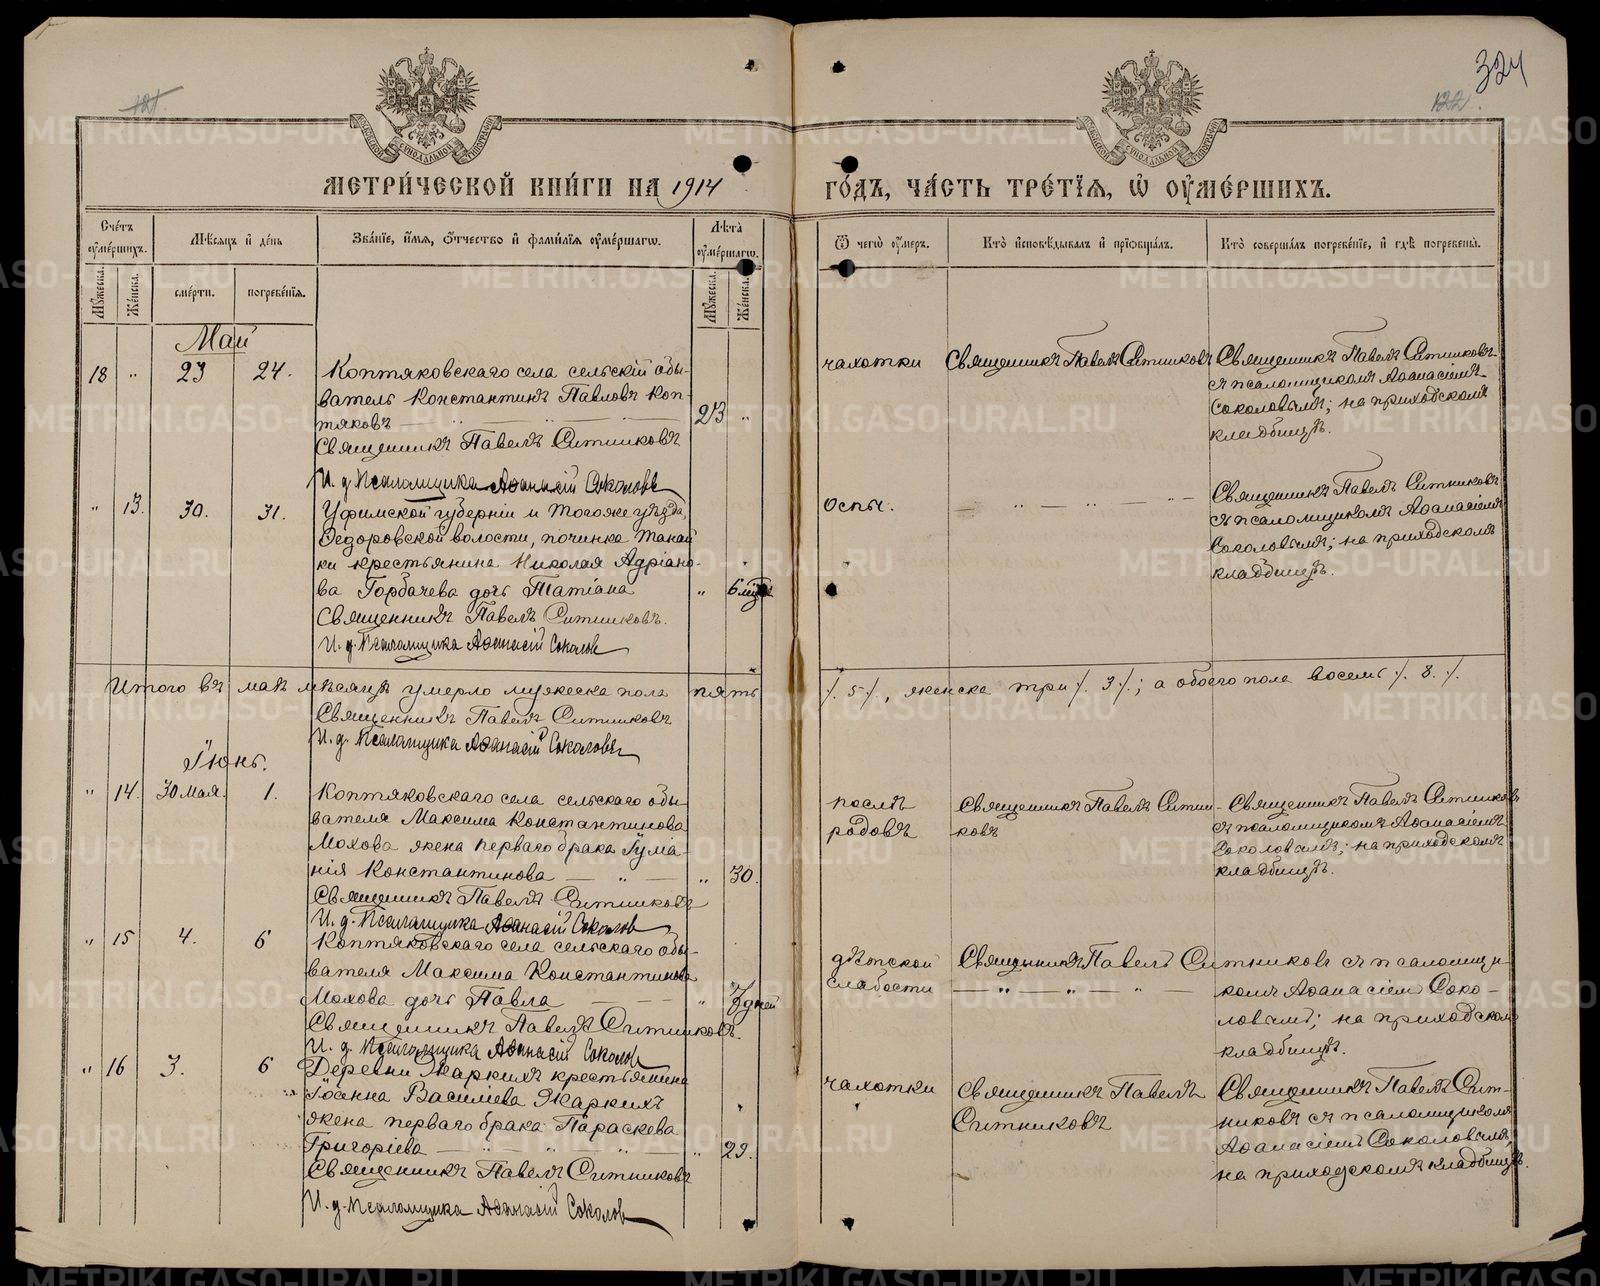 324
121.
122.
МЕТРИ́ЧЕСКОЙ КНИ́ГИ НА 1914 ГО́ДЪ, ЧА́СТЬ ТРЕ́ТІѦ, Ѽ ОУ҆МЕ́РШИХЪ.
Сче́тъ оу҆ме́ршихъ.
Мѣ́сяцъ и҆ де́нь
Зва́ніе, и҆́мя, ѻ҆́тчество и҆ фами́лія оу҆ме́ршагѡ.
Лѣ́та оу҆ме́ршагѡ.
Ѿ чегѡ̀ оу҆́меръ.
Кто̀ и҆сповѣ́дывалъ и҆ прїѡбща́лъ.
Кто̀ соверша́лъ погребе́ніе, и҆ гдѣ̀ погребены̀.
Му́жеска.
Же́нска.
сме́рти.
погребе́нія.
Му́жеска.
Же́нска.
Май
18 " 23 24.
Коптяковскаго села сельскій обы-
ватель Константинъ Павловъ Коп-
тяковъ
23 "
Священникъ Павелъ Ситниковъ
И. д. Псаломщика Аѳанасій Соколовъ
чахотки
Священникъ Павелъ Ситниковъ
Священникъ Павелъ Ситниковъ
съ псаломщикомъ Аѳанасіемъ
Соколовымъ; на приходскомъ
кладбищѣ.
" 13. 30. 31.
Уфимской губерніи и тогоже уѣзда,
Ѳедоровской волости, починка Танай
ки крестьянина Николая Адріано-
ва Горбачева дочь Татіана
" 6 мѣс
Священникъ Павелъ Ситниковъ.
И. д. Псаломщика Аѳанасій Соколовъ
Оспы.
— " — " — " —
Священникъ Павелъ Ситниковъ
съ псаломщикомъ Аѳанасіемъ
Соколовымъ; на приходскомъ
кладбищѣ.
Итого въ маѣ мѣсяцѣ умерло мужеска пола пять /. 5 /., женска три /. 3 /.; а обоего пола восемь /. 8. /.
Священникъ Павелъ Ситниковъ
И. д. Псаломщика Аѳанасій Соколовъ
Іюнь.
" 14. 30 мая. 1.
Коптяковскаго села сельскаго обы
вателя Максима Константинова
Мохова жена перваго брака Іума-
нія Константинова — " —
" 30.
Священникъ Павелъ Ситниковъ
И. д. Псаломщика Аѳанасій Соколовъ
послѣ
родовъ
Священникъ Павелъ Ситни-
ковъ
Священникъ Павелъ Ситниковъ
съ псаломщикомъ Аѳанасіемъ
Соколовымъ; на приходскомъ
кладбищѣ.
" 15 4. 6
Коптяковскаго села сельскаго обы-
вателя Максима Константинова
Мохова дочь Павла — — —
" 7 дней
Священникъ Павелъ Ситниковъ.
И. д. Псаломщика Аѳанасій Соколовъ
дѣтской
слабости
Священникъ Павелъ Ситниковъ съ псаломщи-
— " — " — "
комъ Аѳанасіемъ Соко-
ловымъ; на приходском
кладбищѣ.
" 16 3. 6
Деревни Жаркихъ крестьянина
Іоанна Василіева Жаркихъ
жена перваго брака Параскева
Григоріева — " — " —
" 29.
Священникъ Павелъ Ситниковъ
И. д. Псаломщика Аѳанасій Соколовъ
чахотки
Священникъ Павелъ
Ситниковъ
Священникъ Павелъ Сит-
никовъ съ псаломщикомъ
Аѳанасіемъ Соколовымъ,
на приходскомъ кладбищѣ.
METRIKI.GASO-URAL.RU